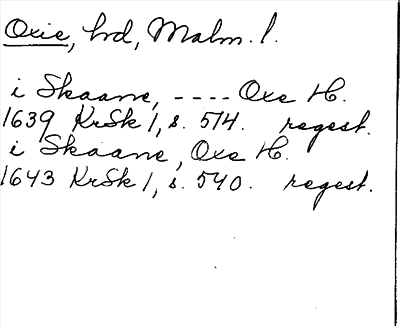 Oxie, hrd, Malm. l.
i Skaane, ---- Oxe H.
1639 KrSk 1, s. 514. regest.
i Skaane, Oxe H.
1643 KrSk 1, s. 540. regest.